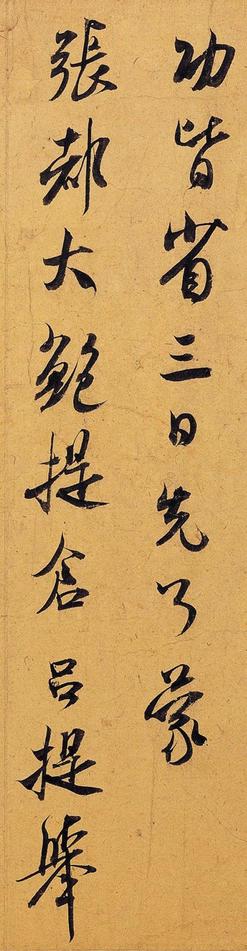 功皆省三日先了蒙
張都大鮑提倉呂提舉